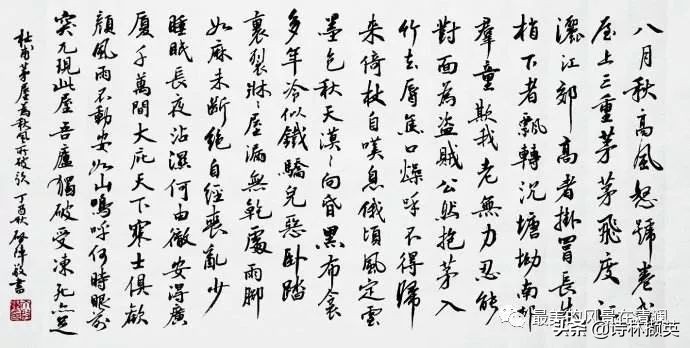 八月秋高風怒號卷我
屋上三重茅茅飛度江
灑江郊高者掛罥長林
梢下者飄轉沉塘坳南村
羣童欺我老無力忍能
對面為盜賊公然抱茅入
竹去脣焦口燥呼不得歸
来倚杖自嘆息俄頃風定雲
墨色秋天漠〻向昏黑布衾
多年冷似鐵驕兒惡卧踏
裏裂牀〻屋漏無乾處雨腳
如麻未斷絕自經喪亂少
睡眠長夜沾濕何由徹安得廣
廈千萬間大庇天下寒士俱歡
顏風雨不動安如山嗚呼何時眼前
突兀現此屋吾廬獨破受凍死亦足
杜甫茅屋為秋風所破歌 丁酉秋 敬書
最美的风哥在
头条@诗林撷英